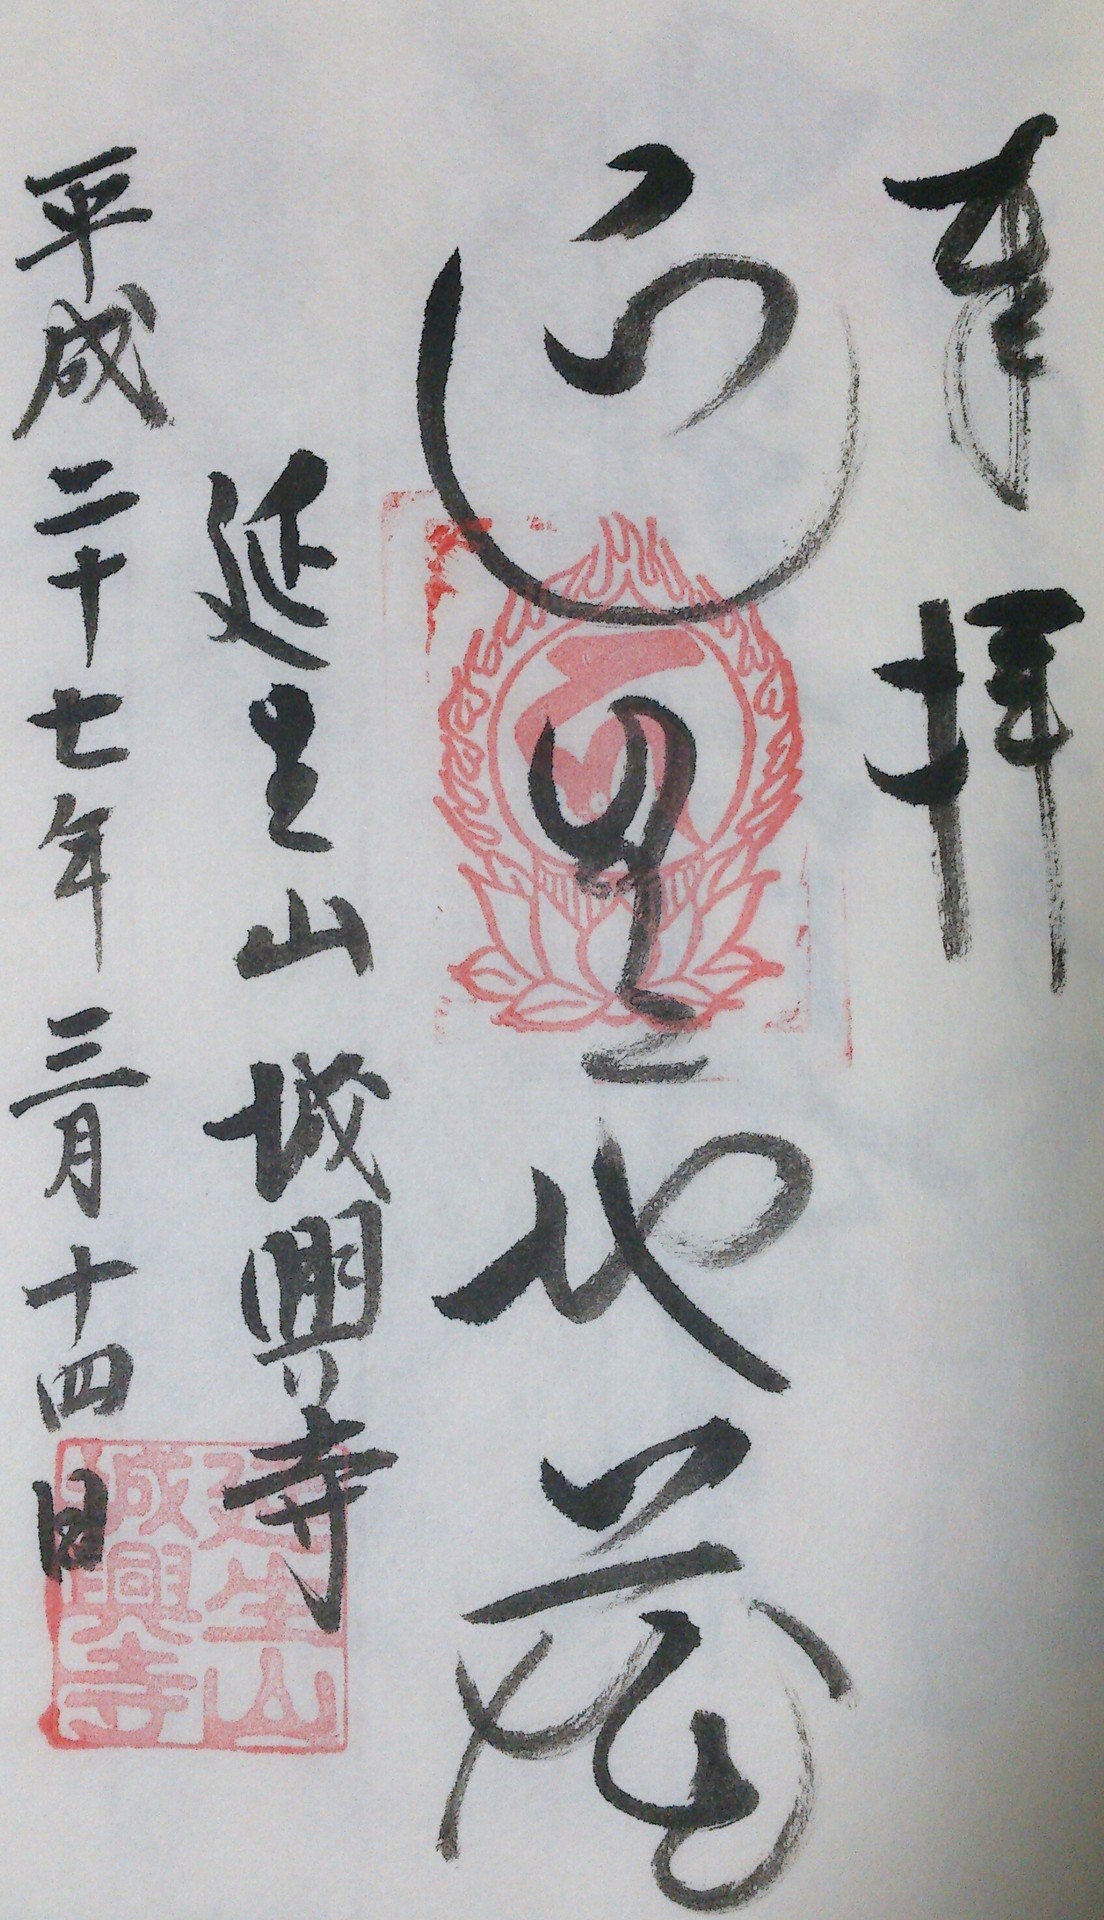 奉拝
延生地蔵
延生山 城興寺
平成二十七年三月十四日
延生山
城興寺